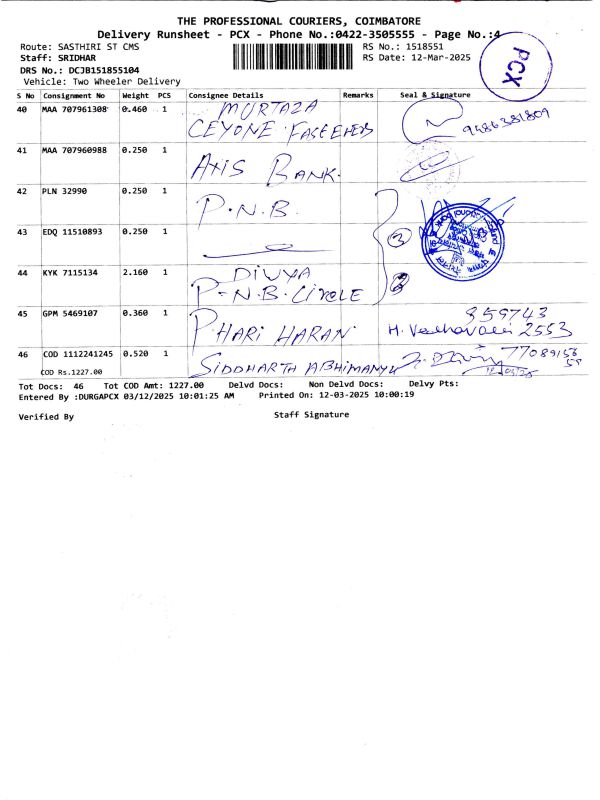 THE PROFESSIONAL COURIERS, COIMBATORE
Delivery Runsheet - PCX - Phone No.:0422-3505555 - Page No.:4
Route: SASTHIRI ST CMS RS No.: 1518551
Staff: SRIDHAR RS Date: 12-Mar-2025
DRS No.: DCJB151855104
Vehicle: Two Wheeler Delivery
PCX
S No Consignment No Weight PCS Consignee Details Remarks Seal & Signature
40 MAA 707961308 0.460 1 MURTAZA
CEYONE 9486381809
41 MAA 707960988 0.250 1 AXIS BANK.
42 PLN 32990 0.250 1 P.N.B.
43 EDQ 11510893 0.250 1 3
44 KYK 7115134 2.160 1 DIWYA
P-N.B. CIRCLE
45 GPM 5469107 0.360 1 P. HARI HARAN 859743
H. 2553
46 COD 1112241245 0.520 1 SIDDHARTH ABHIMANYU 77089156
59
COD Rs.1227.00
Tot Docs: 46 Tot COD Amt: 1227.00 Delvd Docs: Non Delvd Docs: Delvy Pts:
Entered By :DURGAPCX 03/12/2025 10:01:25 AM Printed On: 12-03-2025 10:00:19
Verified By Staff Signature